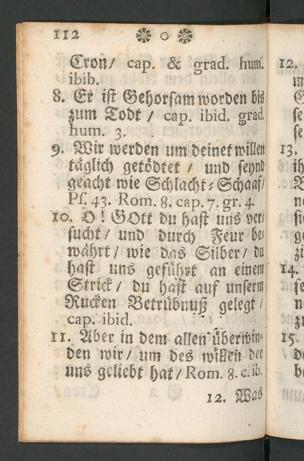 112 ❁ o ❁
Cron/ cap. & grad. hum.
ibib.
8. Er ist Gehorsam worden bis
zum Todt / cap. ibid. grad.
hum. 3.
9. Wir werden um deinet willen
täglich getödtet / und seynd
geacht wie Schlacht-Schaaf/
Ps. 43. Rom. 8. cap. 7. gr. 4.
10. O! GOtt du hast uns ver-
sucht / und durch Feur be-
währt / wie das Silber / du
hast uns geführt an einem
Strick / du hast auf unserm
Rucken Betrübnuß gelegt /
cap. ibid.
11. Aber in dem allen überwin-
den wir / um des willen der
uns geliebt hat / Rom. 8. c. ib.
12. Was
12.
13.
14.
15.